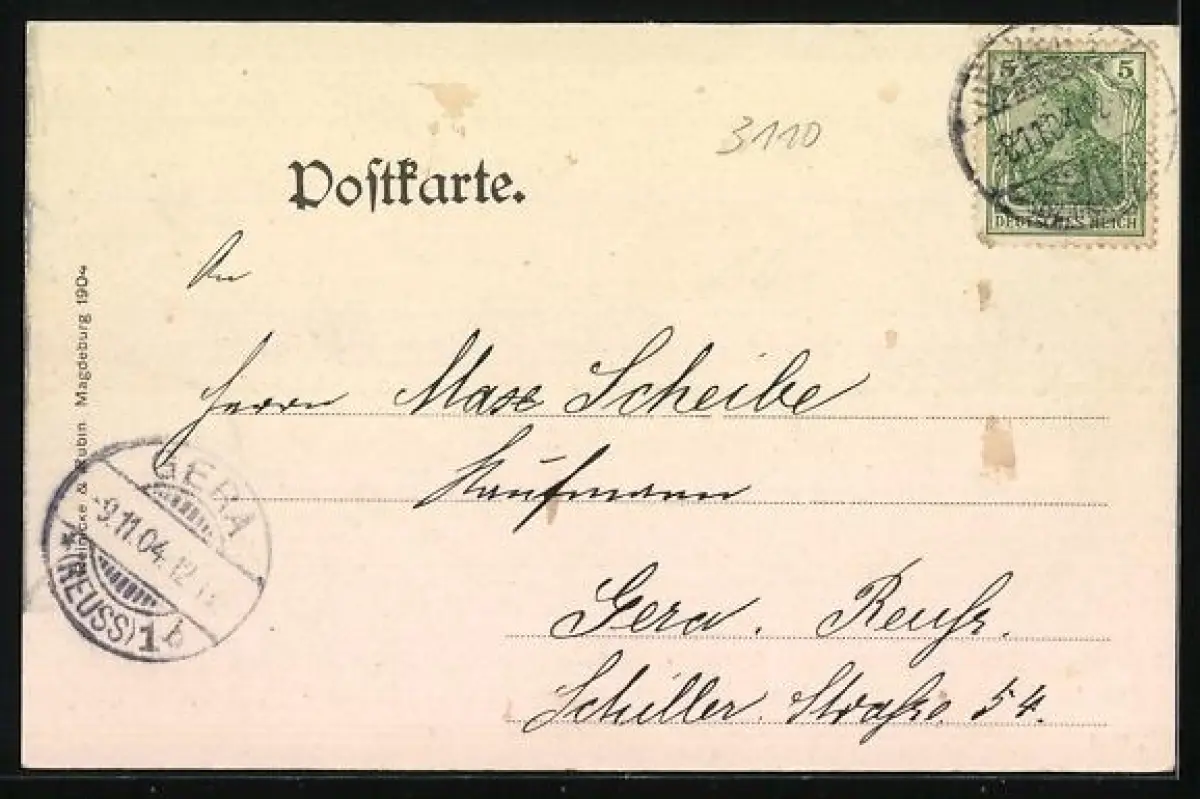 5 5
DEUTSCHES REICH
3110
Postkarte.
An
Herrn Max Scheibe
Kaufmann
Gera. Reuß.
Schiller. Straße 54.
& Rubin Magdeburg 1904
GERA
-9.11.04. 12
* (REUSS) 1 b